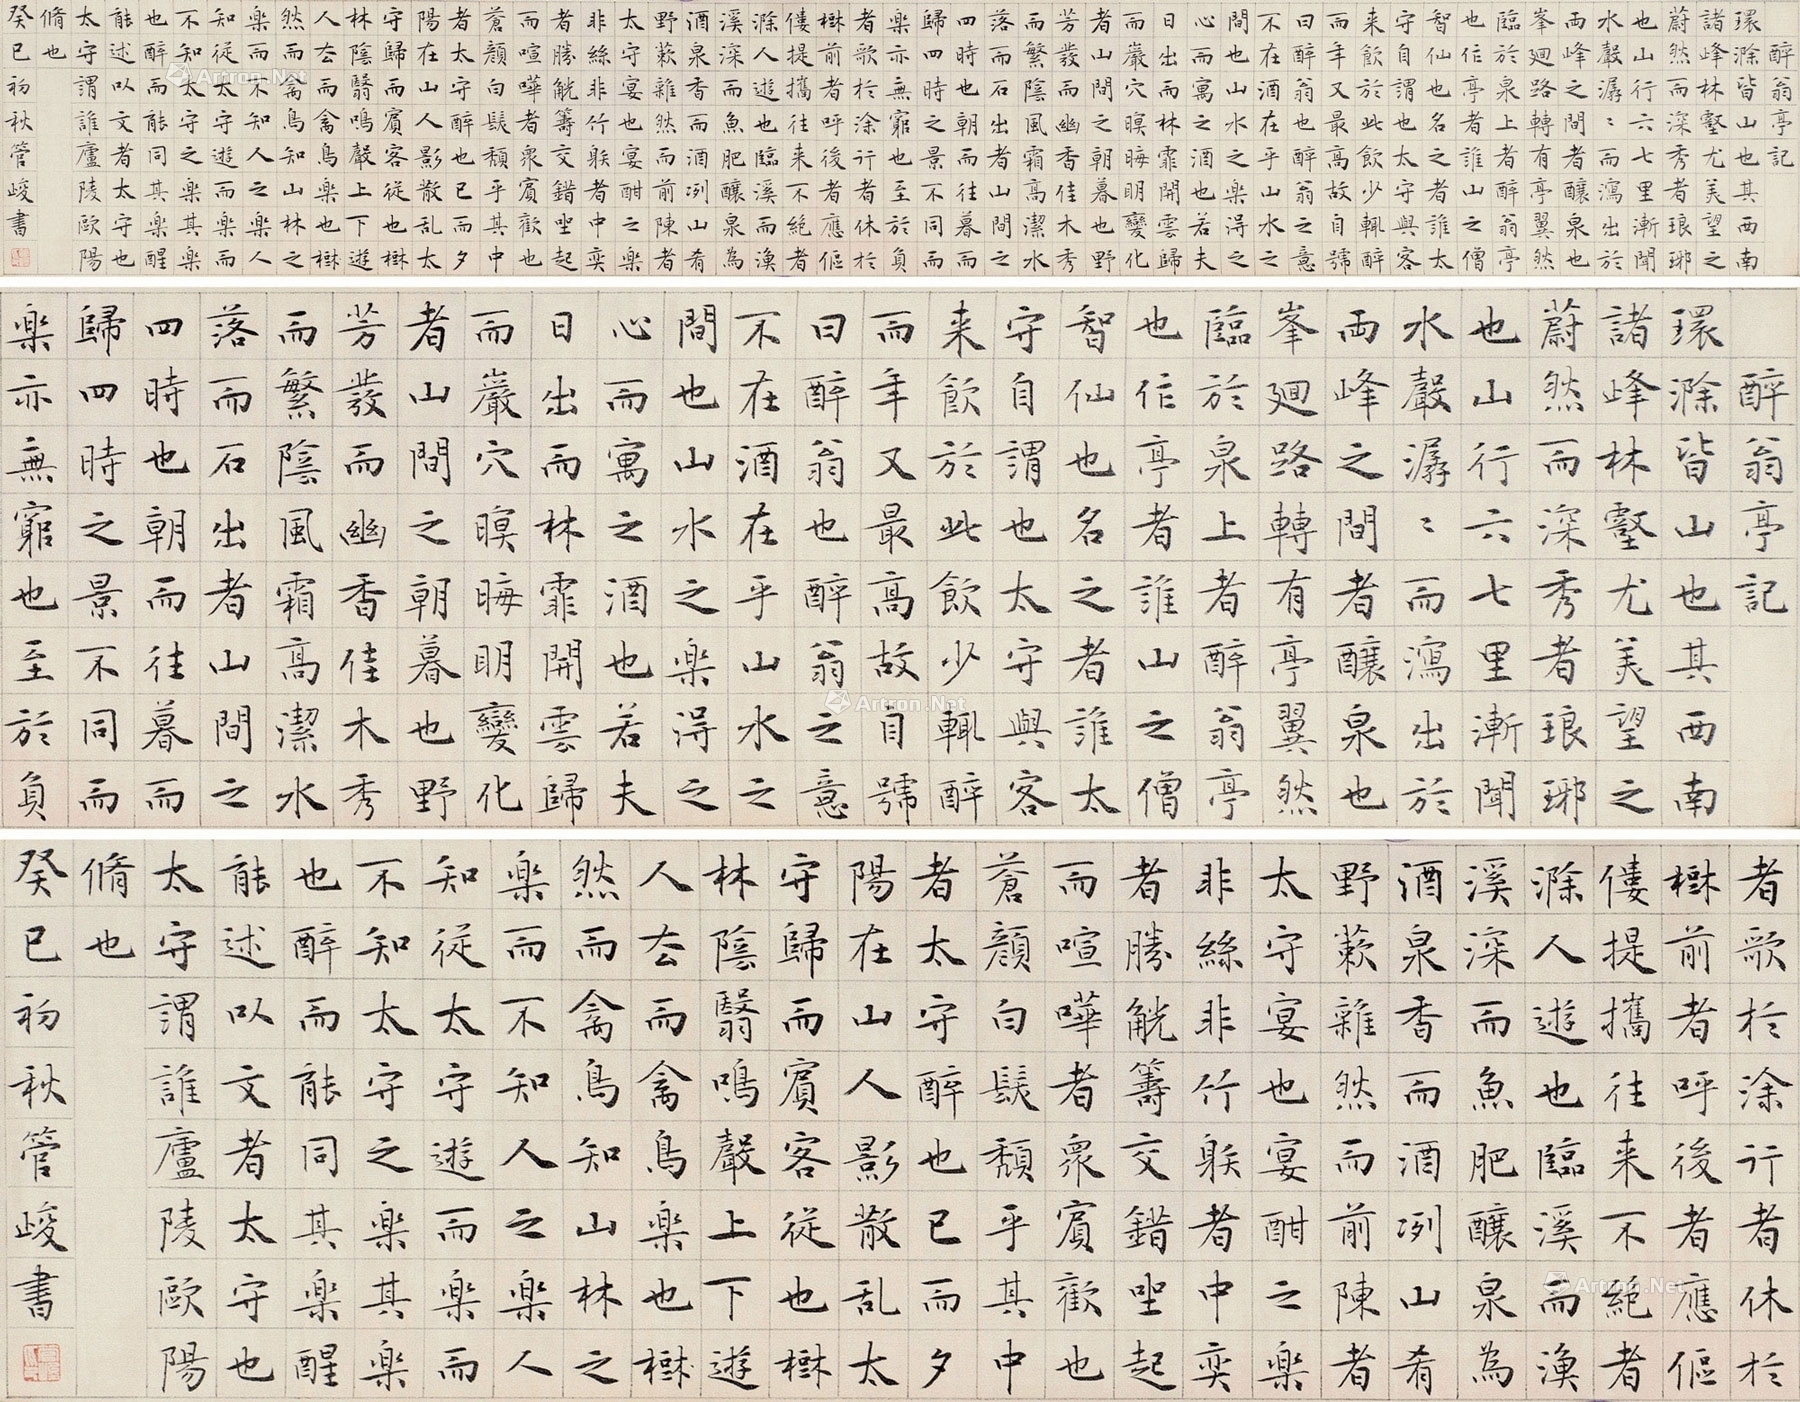 醉翁亭記
環滁皆山也其西南
諸峰林壑尤美望之
蔚然而深秀者琅琊
也山行六七里漸聞
水聲潺〻而瀉出於
兩峰之間者釀泉也
峯廻路轉有亭翼然
臨於泉上者醉翁亭
也作亭者誰山之僧
智仙也名之者誰太
守自謂也太守與客
来飲於此飲少輒醉
而年又最高故自號
曰醉翁也醉翁之意
不在酒在乎山水之
間也山水之楽淂之
心而寓之酒也若夫
日出而林霏開雲歸
而巖穴暝晦明變化
者山間之朝暮也野
芳發而幽香佳木秀
而繁陰風霜高潔水
落而石出者山間之
四時也朝而往暮而
歸四時之景不同而
楽亦無窮也至於負
者歌於涂行者休於
樹前者呼後者應傴
僂提攜往来不絕者
滁人遊也臨溪而漁
溪深而魚肥釀泉為
酒泉香而酒冽山肴
野蔌雜然而前陳者
太守宴也宴酣之楽
非絲非竹躲者中奕
者勝觥籌交錯坐起
而喧嘩者衆賓歡也
蒼顏白髮頹乎其中
者太守醉也已而夕
陽在山人影散乱太
守歸而賓客從也樹
林陰翳鳴聲上下遊
人去而禽鳥楽也樹
然而禽鳥知山林之
楽而不知人之楽人
知從太守遊而楽而
不知太守之楽其楽
也醉而能同其楽醒
能述以文者太守也
太守謂誰廬陵歐陽
脩也
癸巳初秋管峻書
Artron.Net
醉翁亭記
環滁皆山也其西南
諸峰林壑尤美望之
蔚然而深秀者琅琊
也山行六七里漸聞
水聲潺〻而瀉出於
兩峰之間者釀泉也
峯廻路轉有亭翼然
臨於泉上者醉翁亭
也作亭者誰山之僧
智仙也名之者誰太
守自謂也太守與客
来飲於此飲少輒醉
而年又最高故自號
曰醉翁也醉翁之意
不在酒在乎山水之
間也山水之楽淂之
心而寓之酒也若夫
日出而林霏開雲歸
而巖穴暝晦明變化
者山間之朝暮也野
芳發而幽香佳木秀
而繁陰風霜高潔水
落而石出者山間之
四時也朝而往暮而
歸四時之景不同而
楽亦無窮也至於負
Artron.Net
者歌於涂行者休於
樹前者呼後者應傴
僂提攜往来不絕者
滁人遊也臨溪而漁
溪深而魚肥釀泉為
酒泉香而酒冽山肴
野蔌雜然而前陳者
太守宴也宴酣之楽
非絲非竹躲者中奕
者勝觥籌交錯坐起
而喧嘩者衆賓歡也
蒼顏白髮頹乎其中
者太守醉也已而夕
陽在山人影散乱太
守歸而賓客從也樹
林陰翳鳴聲上下遊
人去而禽鳥楽也樹
然而禽鳥知山林之
楽而不知人之楽人
知從太守遊而楽而
不知太守之楽其楽
也醉而能同其楽醒
能述以文者太守也
太守謂誰廬陵歐陽
脩也
癸巳初秋管峻書
Artron.Net